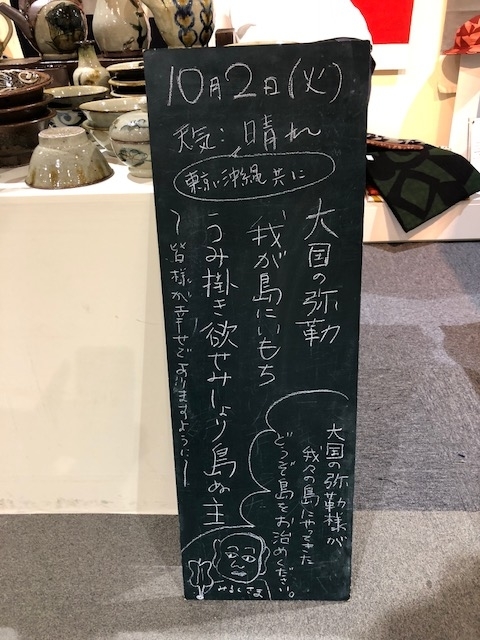 10月2日(火)
天気:晴れ
東京、沖縄共に
大国の弥勒
我が島にいもち
うみ掛き欲せみしょり島ぬ王
〜皆様が幸せでありますように〜
大国の弥勒様が
我々の島にやってきた
どうぞ島をお治めください。
みるくさま